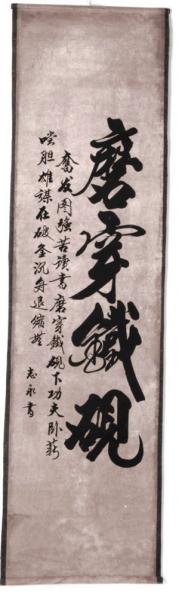 磨穿鐵硯
奮发图強苦讀書磨穿鐵硯下功夫卧薪
嚐胆雄謀在破釜沉舟退縮無
志永書